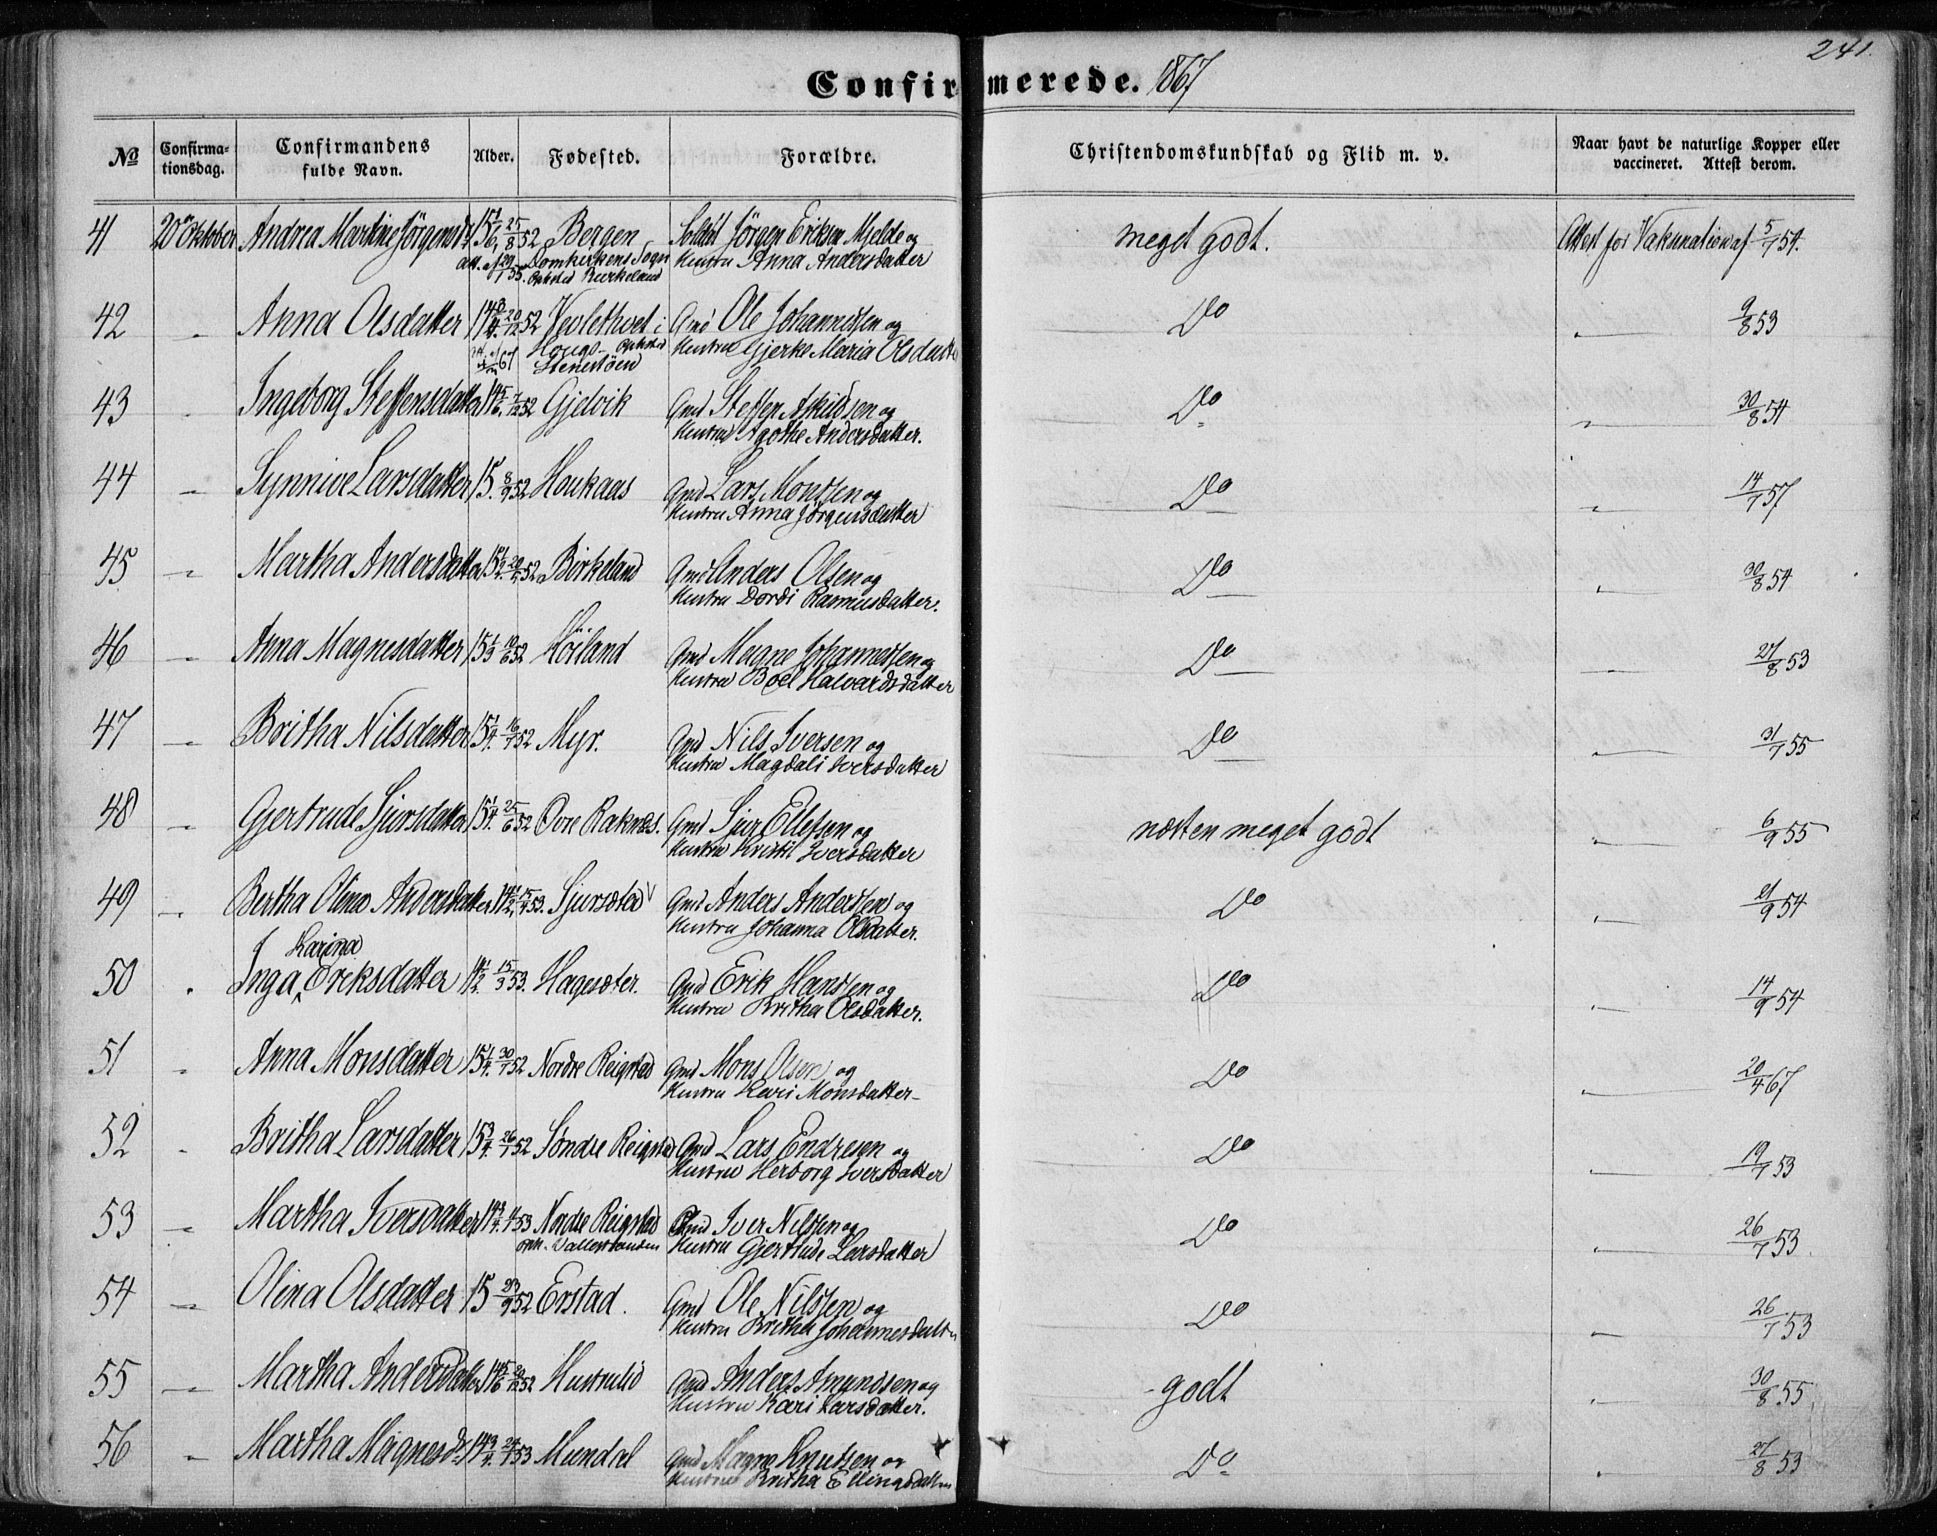 241.
Confirmerede. 1867
No
Confirmationsdag.
Confirmandens fulde Navn.
Alder.
Fødested.
Forældre.
Christendomskundskab og Flid m. v.
Naar havt de naturlige Kopper eller vaccineret. Attest derom.
41 20de Oktober Andrea Martine Jörgensdr 15 1/6 25/8 52 Bergen Soldat Jörgen Eriksen Mjelde og meget godt. Attest for Vakcination af 5/7 54.
Domkirkens Sogn Hustru Anna Andersdatter
Ophold Birkeland
42 " Anna Olsdatter 14 3/4 20/12 52 Gmd Ole Johannessen og Do " 9/8 53
Hougs Ophold Hustru Gjerke Maria Olsdatter
Stenestöen
43 " Ingeborg Steffensdatter 14 5/6 7/12 52 Gjelvik Gmd Steffen Askildsen og Do " 30/8 54
Hustru Agothe Andersdatter.
44 " Synnive Larsdatter 15 8/9 52 Houkaas Gmd Lars Monssen og Do " 14/7 57
Hustru Anna Jörgensdatter
45 " Martha Andersdatter 15 1/2 52 Birkeland Gmd Anders Olsen og Do " 30/8 54
Hustru Dordi Rasmusdatter.
46 " Anna Magnesdatter 15 1/3 19/6 52 Höiland Gmd Magne Johannessen og Do " 27/8 53
Hustru Boel Halvardsdatter
47 " Britha Nilsdatter 15 1/4 16/7 52 Myr. Gmd Nils Iversen og Do " 31/7 55
Hustru Magdali Iversdatter
48 " Gjertrude Sjursdatter 15 1/4 25/6 52 Övre Raknes. Gmd Sjur Ellefsen og næsten meget godt " 6/9 55
Hustru Kristi Iversdatter
49 " Bertha Olina Andersdatter 14 1/2 15/4 53. Sjursæter Gmd Anders Anderssen og Do " 21/9 54
Hustru Johanna Olsdatter.
Karina
50 " Inga Eriksdatter 14 1/2 15/3 53. Hagesæter. Gmd Erik Hanssen og Do " 14/9 54
Hustru Britha Olsdatter.
51 " Anna Monsdatter 15 1/4 30/7 52 Nordre Reigstad Gmd Mons Olsen og Do " 20/4 67
Hustru Kari Monsdatter
52 " Britha Larsdatter 15 1/4 26/7 52 Söndre Reigstad Gmd Lars Endresen og Do " 19/7 53
Hustru Herborg Iversdatter
53 " Martha Iversdatter 14 3/4 53 Nordre Reigstad Gmd Iver Nilssen og Do " 26/7 53
oph. Vallestranden Hustru Gjertrude Larsdatter
54 " Olina Olsdatter 15 23/9 52 Erstad. Gmd Ole Nilssen og Do " 26/7 53
Hustru Britha Johannesdatter
55 " Martha Andersdatter 14 5/6 52 Hustrulid Gmd Anders Amundsen og godt " 30/8 55
Hustru Kari Larsdatter.
56 " Martha Magnesdr 14 3/4 53 Mundal Gmd Magne Knutsen og Do " 27/8 53
Hustru Britha Ellingsdatter